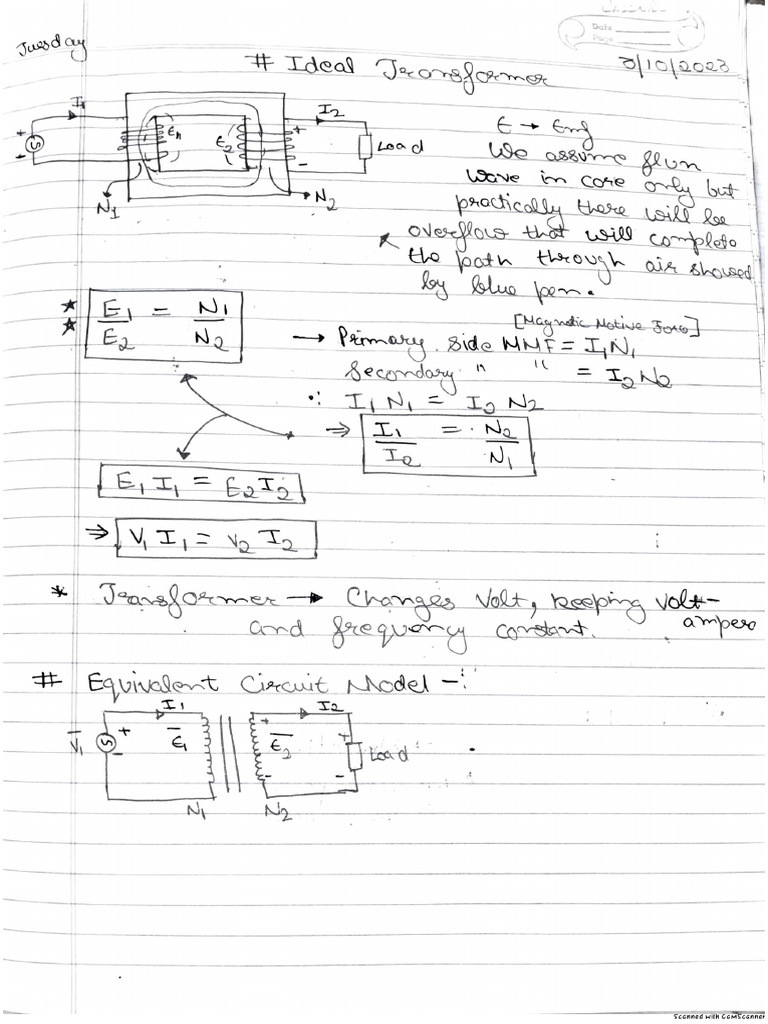 Date
Page
Tuesday
# Ideal Transformer
3/10/2023
I1
I2
E1
E2
+
-
S
Load
N1
N2
E → Emf
We assume flux
wave in core only but
practically there will be
overflow that will complete
the path through air showed
by blue pen.
* * E1/E2 = N1/N2
[Magnetic Motive Force]
→ Primary side MMF = I1N1
Secondary " " = I2N2
∴ I1N1 = I2N2
⇒ I1/I2 = N2/N1
E1 I1 = E2 I2
⇒ V1 I1 = V2 I2
* Transformer → Changes Volt, keeping volt-
ampere
and frequency constant.
# Equivalent Circuit Model -:
I1
I2
V1
S
+
-
E1
+
E2
-
+
Load
-
N1
N2
Scanned with CamScanner